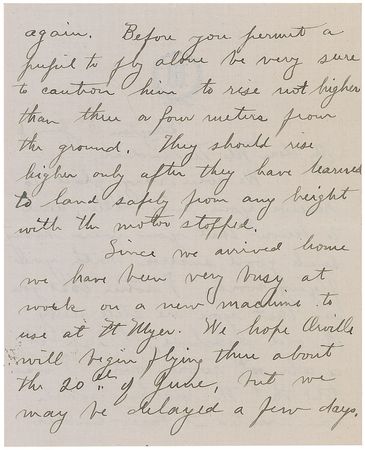 again. Before you permit a
pupil to fly alone be very sure
to caution him to rise not higher
than three or four meters from
the ground. They should rise
higher only after they have learned
to land safely from any height
with the motor stopped.
Since we arrived home
we have been very busy at
work on a new machine to
use at Ft Myer. We hope Orville
will begin flying there about
the 20th of June, but we
may be delayed a few days.